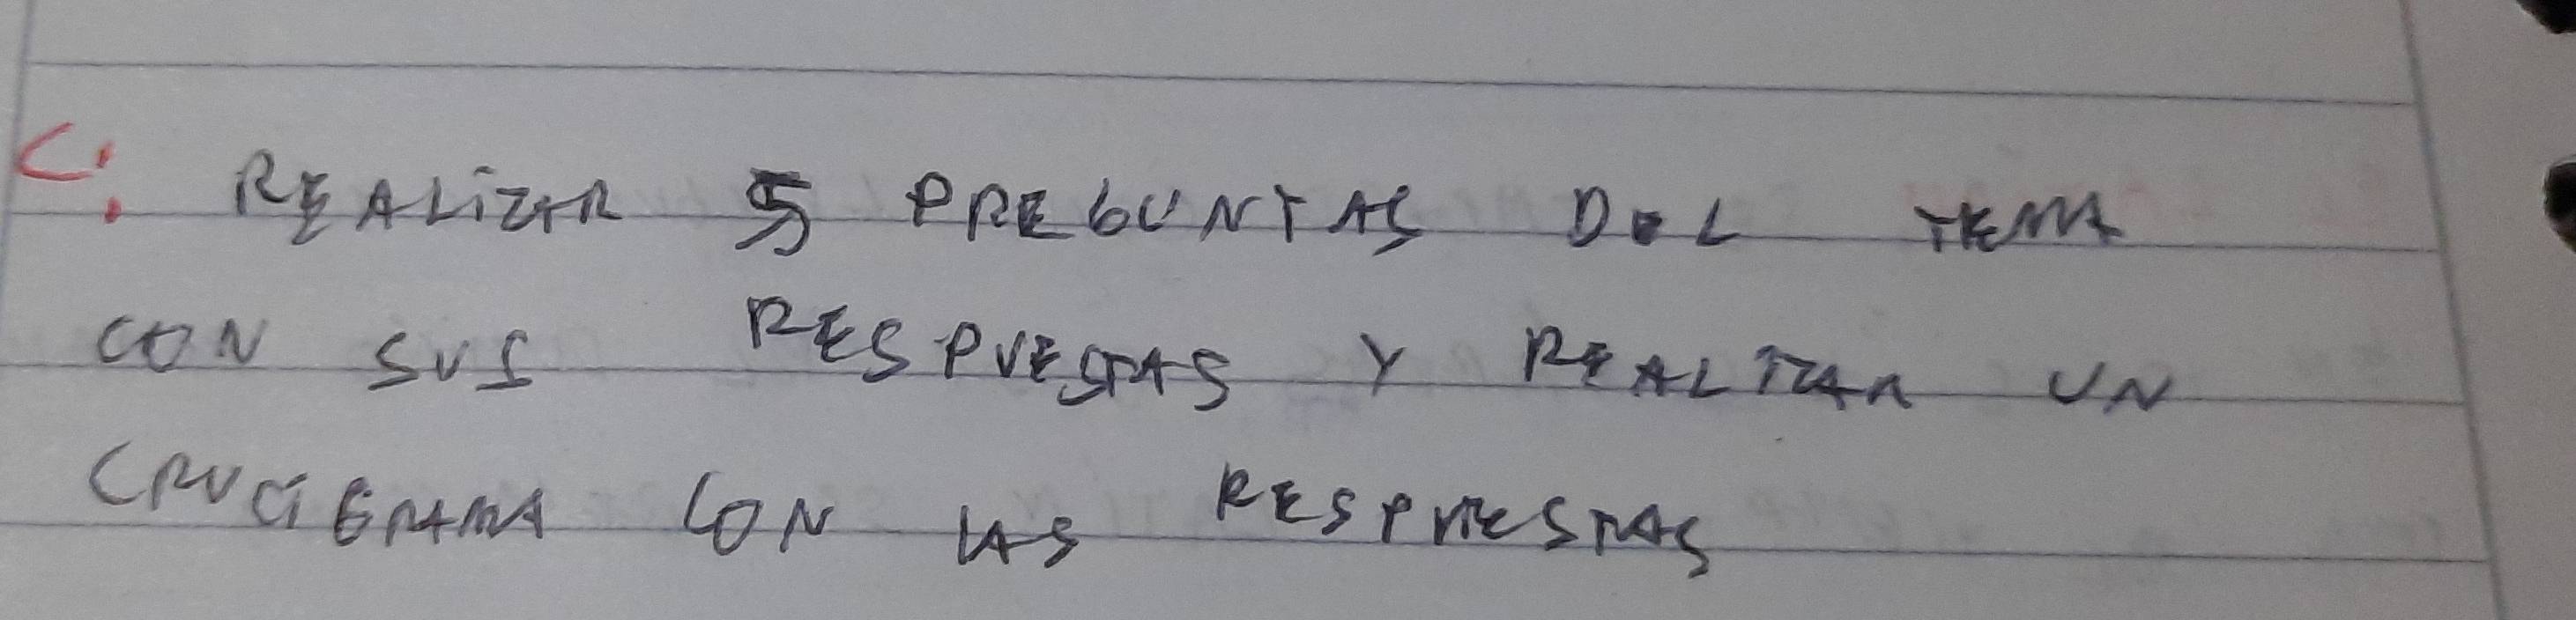 C: REALIZAR 5 PREGUNTAS DEL TEMA
CON SUS RESPUESTAS Y REALIZAR UN
CRUCIGRAMA CON LAS RESPUESTAS